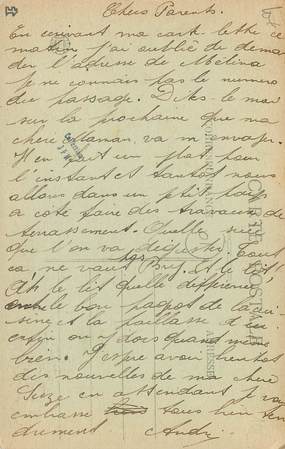 Chers Parents.
En écrivant ma carte-lettre ce
matin j'ai oublié de deman
der l'adresse de Mélina
je ne connais pas le numéro
du passage. Dites-le moi
sur la prochaine que ma
chère Maman va m'envoyer.
Il en fait un plat pour
l'instant et tantôt nous
allons dans un petit
à côté faire des travaux de
terrassement. Quelle suée
que l'on va Tout
ça ne vaut pas Brif. et le lit
Ah le lit quelle différence
le bon pagot de la cui
sine et la paillasse d'ici
enfin on y dors quand même
bien. J'espère avoir bientôt
des nouvelles de ma chère
Suze en attendant je vous
embrasse tous bien ten
drement André
CARTE POSTALE
CORRESPONDANCE
ADRESSE